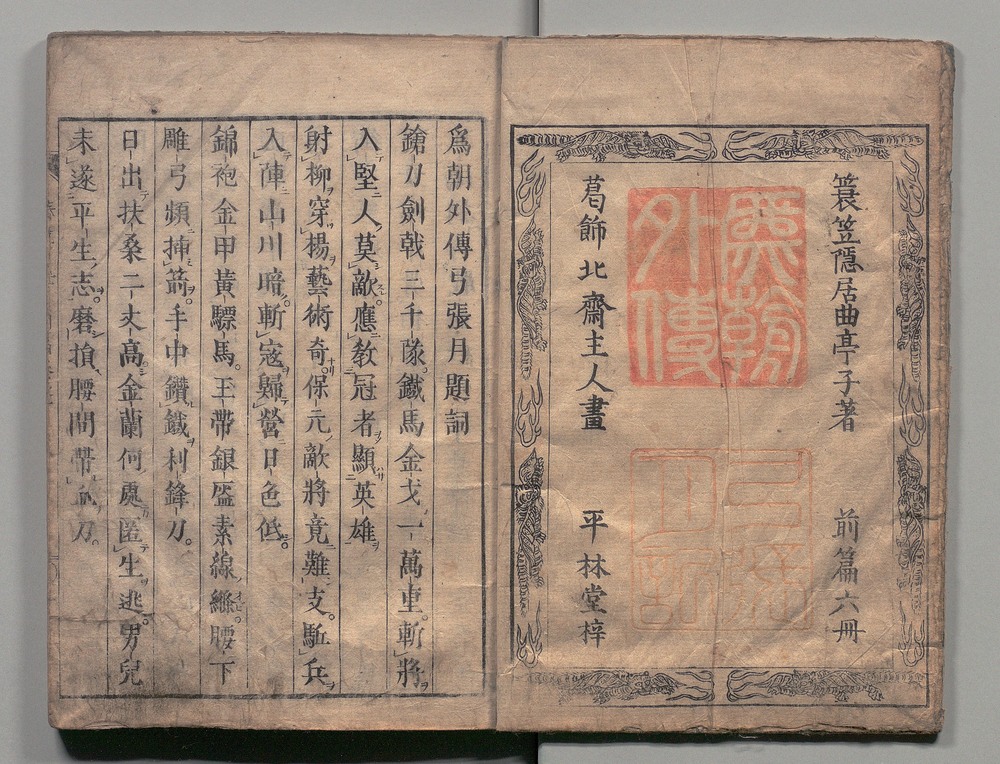 簑笠隱居曲亭子著 前篇六冊
爲朝外傳
葛飾北齋主人畫 平林堂梓
爲朝外傳弓張月題詞
鎗刀劍戟三千隊。鐵馬金戈一萬重斬將
入堅人莫敵。應教冠者顯英雄
射柳穿楊藝術奇。保元敵將竟難支。駈兵
入陣山川暗。斬寇歸營日色低。
錦袍金甲黃驃馬。玉帶銀盔素線縧。腰下
雕弓頻揷箭。手中鑽鐵利鋒刀。
日出扶桑二丈高金蘭何處匿生逃。男兒
未遂平生志。磨損腰間帶血刀。